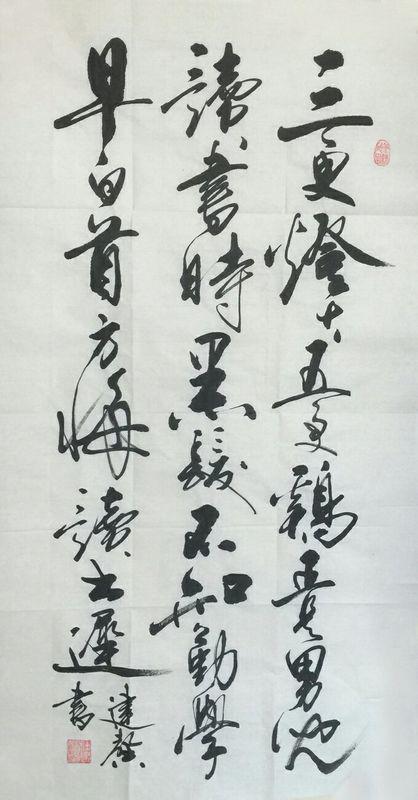 三更燈火五更鷄正是男兒
讀書時黑髮不知勤學
早白首方悔讀书遲
書